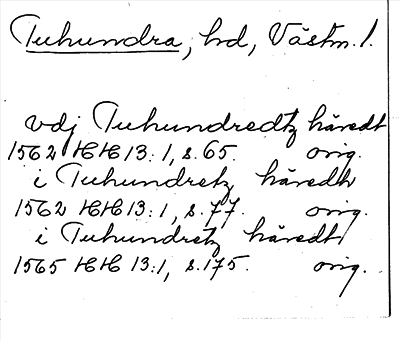 Tuhundra, hd, Västm. l.
vdj Tuhundredtz häredt
1562 HH 13:1, s. 65. orig.
i Tuhundretz häredh
1562 HH 13:1, s. 77. orig.
i Tuhundretz häredt
1565 HH 13:1, s. 175. orig.